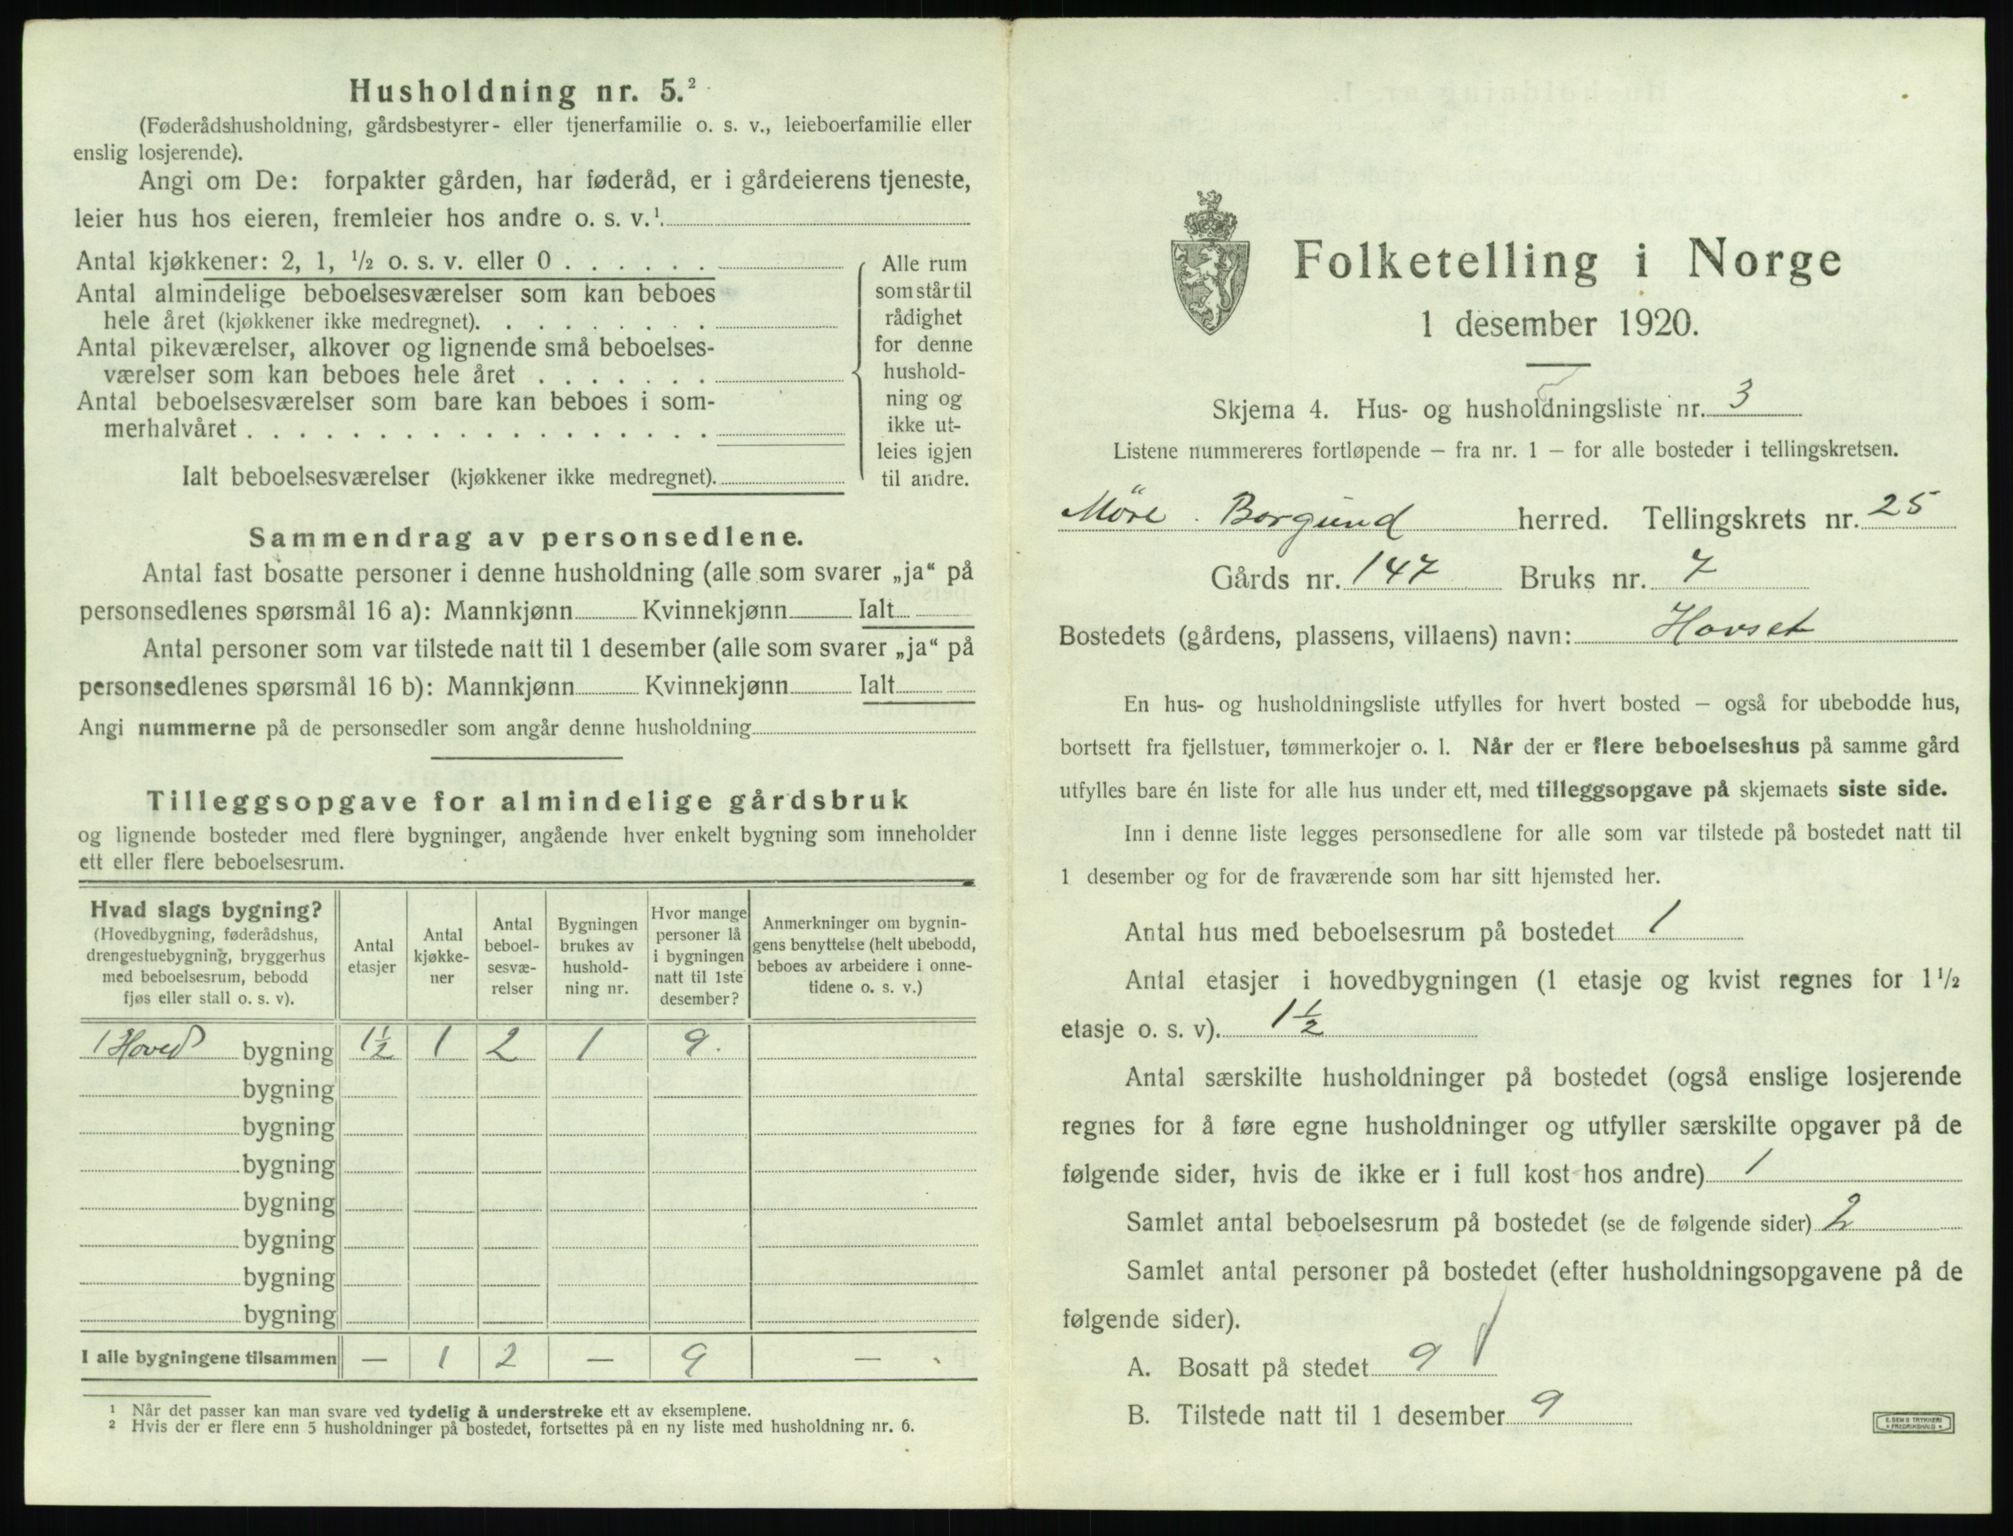 Husholdning nr. 5.²
(Føderådshusholdning, gårdsbestyrer- eller tjenerfamilie o. s. v., leieboerfamilie eller
enslig losjerende).
Angi om De: forpakter gården, har føderåd, er i gårdeierens tjeneste,
leier hus hos eieren, fremleier hos andre o. s. v.¹
Antal kjøkkener: 2, 1, ½ o. s. v. eller 0 . . . . . .
Antal almindelige beboelsesværelser som kan beboes
hele året (kjøkkener ikke medregnet). . . . . . . . .
Antal pikeværelser, alkover og lignende små beboelses-
værelser som kan beboes hele året . . . . . . .
Antal beboelsesværelser som bare kan beboes i som-
merhalvåret . . . . . . . . . . . . . . . . . .
Ialt beboelsesværelser (kjøkkener ikke medregnet).
Alle rum
som står til
rådighet
for denne
hushold-
ning og
ikke ut-
leies igjen
til andre.
Sammendrag av personsedlene.
Antal fast bosatte personer i denne husholdning (alle som svarer „ja“ på
personsedlenes spørsmål 16 a): Mannkjønn Kvinnekjønn Ialt
Antal personer som var tilstede natt til 1 desember (alle som svarer „ja“ på
personsedlenes spørsmål 16 b): Mannkjønn Kvinnekjønn Ialt
Angi nummerne på de personsedler som angår denne husholdning
Tilleggsopgave for almindelige gårdsbruk
og lignende bosteder med flere bygninger, angående hver enkelt bygning som inneholder
ett eller flere beboelsesrum.
Hvad slags bygning?
(Hovedbygning, føderådshus,
drengestuebygning, bryggerhus
med beboelsesrum, bebodd
fjøs eller stall o. s. v).
Antal
etasjer
Antal
kjøkke-
ner
Antal
beboel-
sesvæ-
relser
Bygningen
brukes av
hushold-
ning nr.
Hvor mange
personer lå
i bygningen
natt til 1ste
desember?
Anmerkninger om bygnin-
gens benyttelse (helt ubebodd,
beboes av arbeidere i onne-
tidene o. s. v.)
1 Hoved bygning 1½ 1 2 1 9.
bygning
bygning
bygning
bygning
bygning
bygning
bygning
I alle bygningene tilsammen — 1 2 — 9 —
¹ Når det passer kan man svare ved tydelig å understreke ett av eksemplene.
² Hvis der er flere enn 5 husholdninger på bostedet, fortsettes på en ny liste med husholdning nr. 6.
Folketelling i Norge
1 desember 1920.
Skjema 4. Hus- og husholdningsliste nr. 3
Listene nummereres fortløpende – fra nr. 1 – for alle bosteder i tellingskretsen.
Möre. Borgund herred. Tellingskrets nr. 25
Gårds nr. 147 Bruks nr. 7
Bostedets (gårdens, plassens, villaens) navn: Hovset
En hus- og husholdningsliste utfylles for hvert bosted – også for ubebodde hus,
bortsett fra fjellstuer, tømmerkojer o. l. Når der er flere beboelseshus på samme gård
utfylles bare én liste for alle hus under ett, med tilleggsopgave på skjemaets siste side.
Inn i denne liste legges personsedlene for alle som var tilstede på bostedet natt til
1 desember og for de fraværende som har sitt hjemsted her.
Antal hus med beboelsesrum på bostedet 1
Antal etasjer i hovedbygningen (1 etasje og kvist regnes for 1½
etasje o. s. v). 1½
Antal særskilte husholdninger på bostedet (også enslige losjerende
regnes for å føre egne husholdninger og utfyller særskilte opgaver på de
følgende sider, hvis de ikke er i full kost hos andre) 1
Samlet antal beboelsesrum på bostedet (se de følgende sider) 2
Samlet antal personer på bostedet (efter husholdningsopgavene på de
følgende sider).
A. Bosatt på stedet 9
B. Tilstede natt til 1 desember 9
E. SEM'S TRYKKERI
FREDRIKSHALD